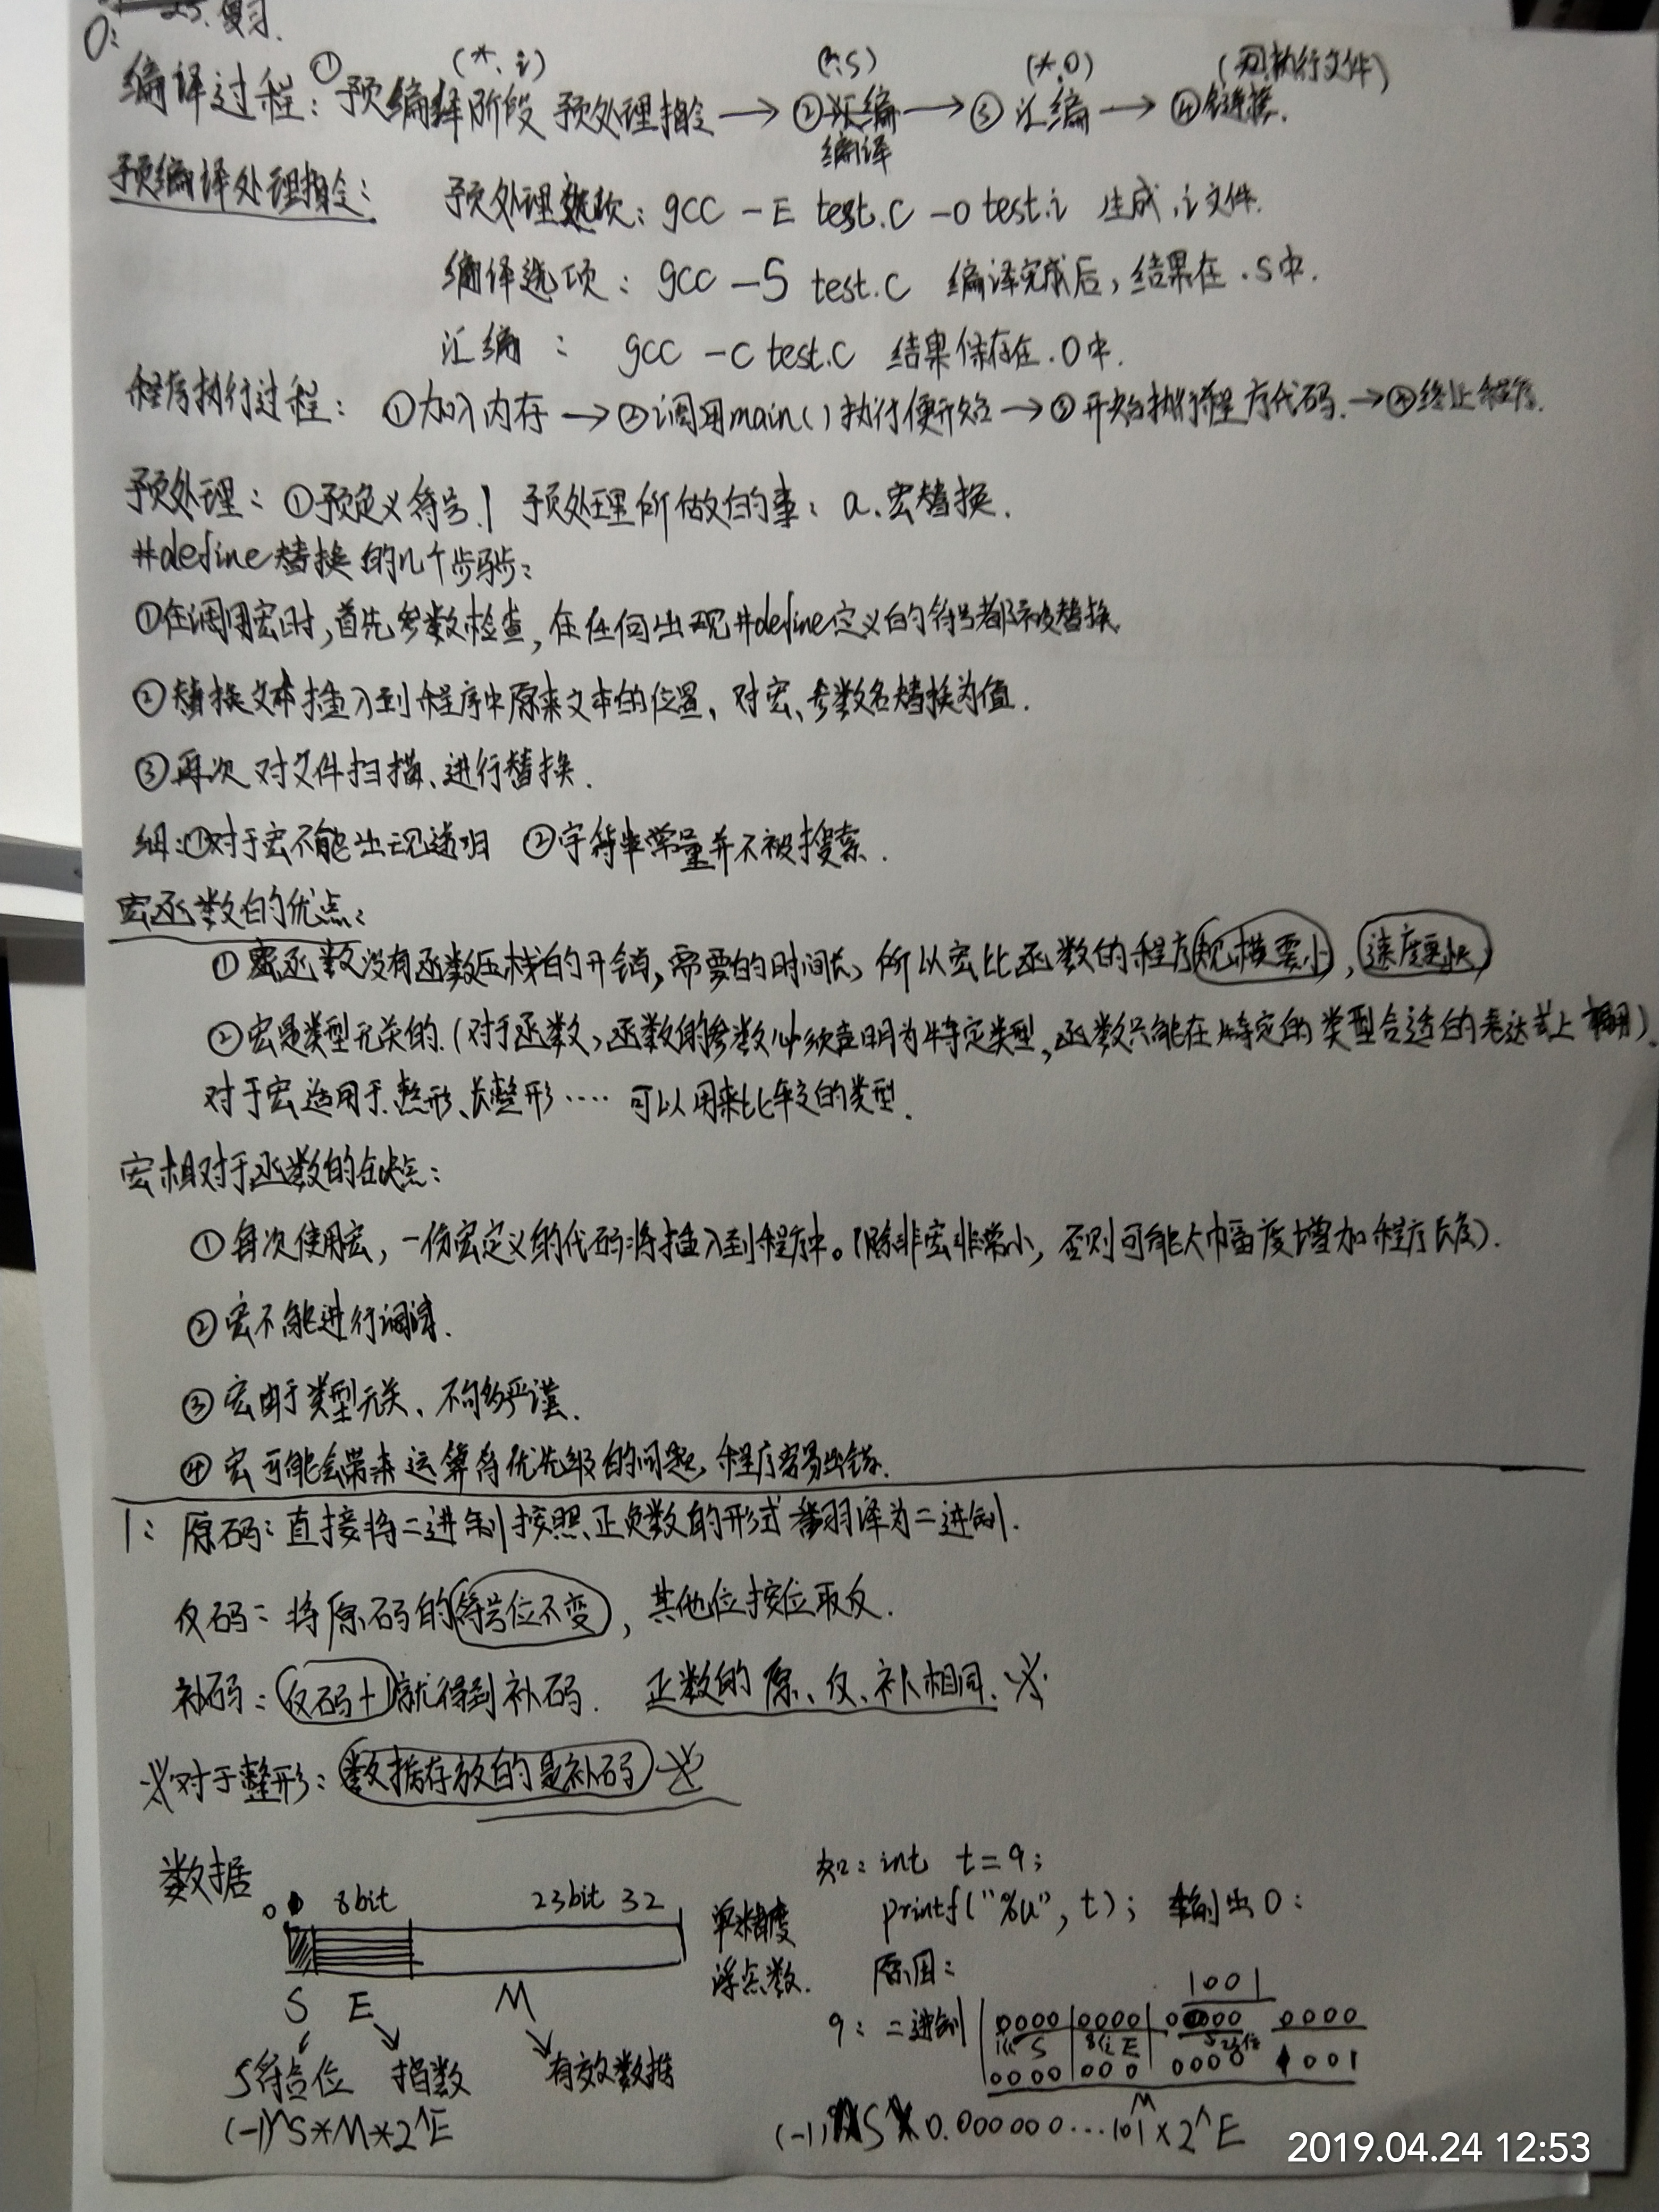 0: 复习.
(*.i) (*.S) (*.O) (可执行文件)
编译过程: ①预编译阶段 预处理指令 → ②汇编 → ③ 汇编 → ④链接.
编译
预编译处理指令: 预处理选项: gcc -E test.C -o test.i 生成.i文件.
编译选项: gcc -S test.C 编译完成后, 结果在.S中.
汇编 : gcc -C test.C 结果保存在.O中.
程序执行过程: ①加入内存 → ②调用main()执行便开始 → ③开始执行程序代码. → ④终止程序.
预处理: ①预定义符号.| 预处理所做的事: a.宏替换.
#define替换的几个步骤:
①在调用宏时,首先参数检查,在任何出现#define定义的符号都被替换.
②替换文本插入到程序中原来文本的位置、对宏、参数名替换为值.
③再次对文件扫描、进行替换.
①对于宏不能出现递归 ②字符串常量并不被搜索.
宏函数的优点:
①宏函数没有函数压栈的开销,需要的时间长,所以宏比函数的程序规模要小,速度更快
②宏是类型无关的.(对于函数,函数的参数必须声明为特定类型,函数只能在特定的类型合适的表达式上)
对于宏适用于.整形、长整形.... 可以用来比较的类型.
宏相对于函数的缺点:
①每次使用宏,一份宏定义的代码将插入到程序中。(除非宏非常小,否则可能大幅度增加程序长度).
②宏不能进行调试.
③宏由于类型无关、不够严谨.
④宏可能会带来运算符优先级的问题,程序容易出错.
1: 原码:直接将二进制按照正负数的形式翻译为二进制.
反码:将原码的符号位不变,其他位按位取反.
补码:反码+1就得到补码. 正数的 原、反、补相同.
对于整形:数据存放的是补码
数据 如: int t=9;
0 8bit 23bit 32 单精度 printf("%u", t); 输出0:
浮点数. 原因:
S E M 1001
9: 二进制 0000 0000 0000 0000
S 8位E 23位
0000 000 0000 1001
S符合位 指数 有效数据
(-1)^S*M*2^E M
(-1)^S*0.000000...101×2^E
2019.04.24 12:53